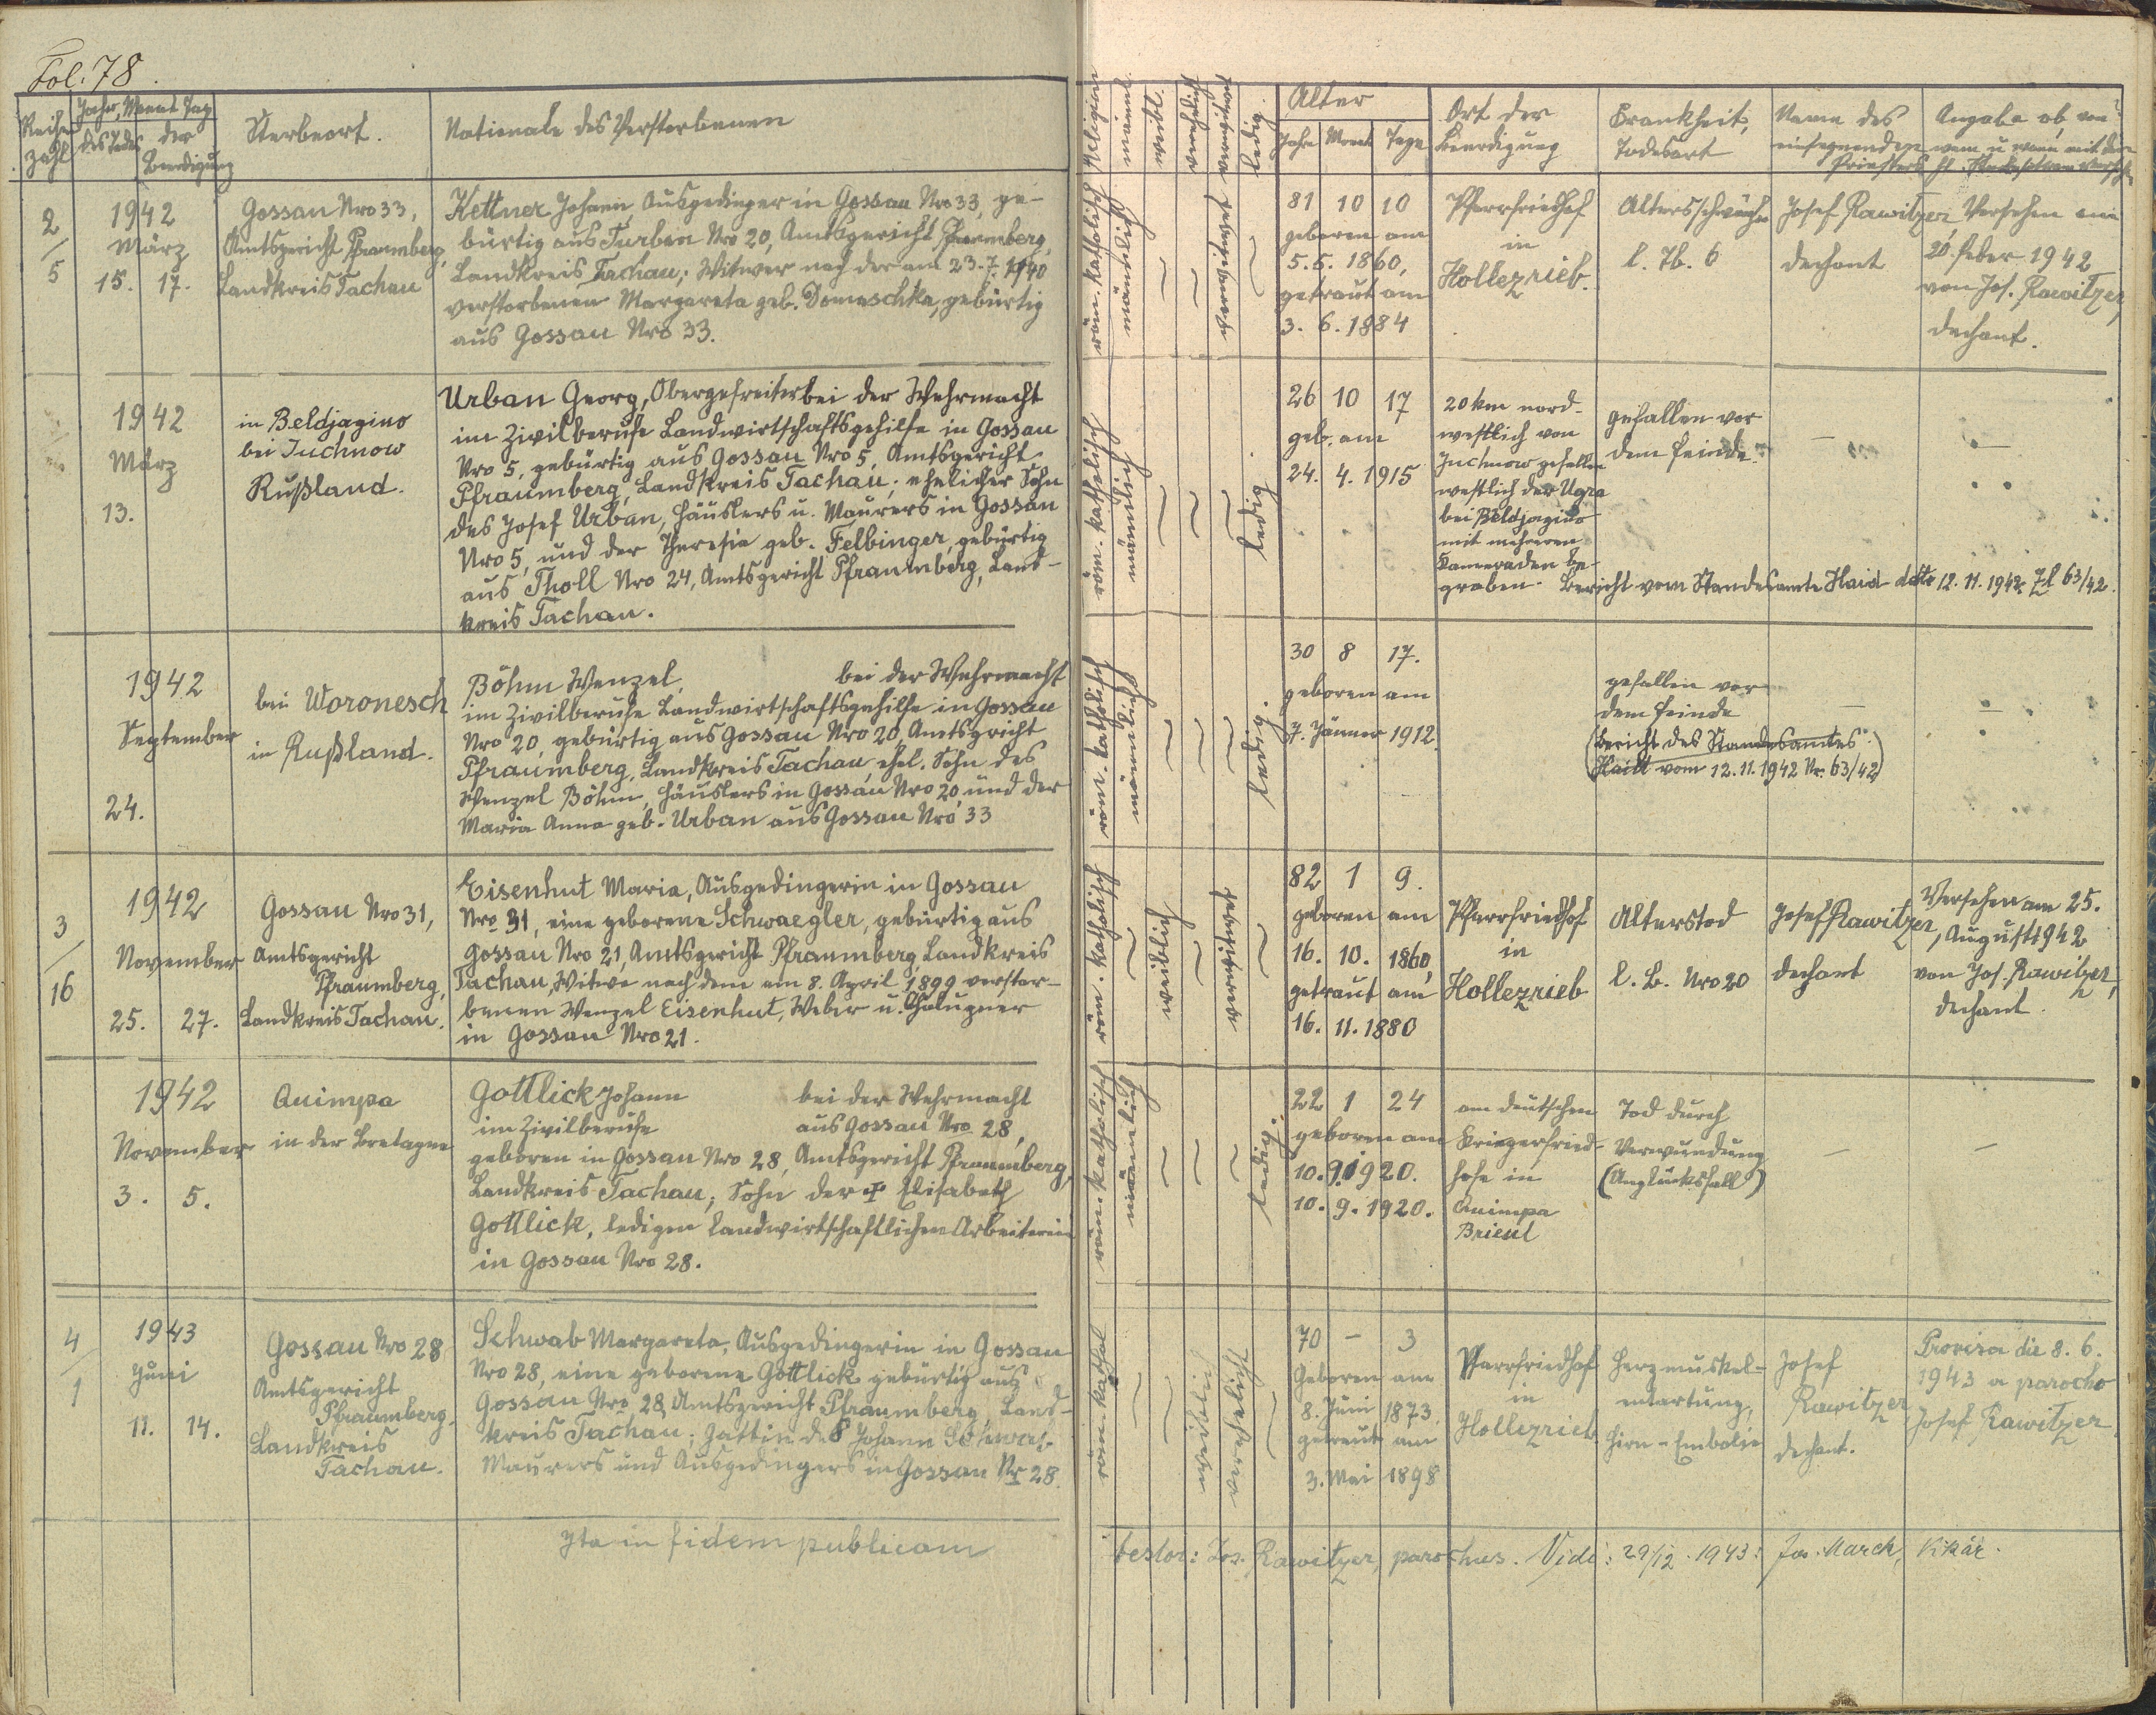 Fol. 78.
Reihe Zahl
Jahr, Monat Tag
des Todes
der Beerdigung
Sterbeort.
Nationale des Verstorbenen
Religion
männl.
weibl.
verehelicht
verwitwet
ledig.
Alter
Jahre Monate Tage
Ort der
Beerdigung
Krankheit,
Todesart
Name des
einsegnenden
Priesters
Angabe ob, von
wem u wann mit den
hl. Sterbesakramenten versehen
2/5
1942
März
15. 17.
Gossau Nro 33,
Amtsgericht Pfraumberg,
Landkreis Tachau
Kettner Johann, Ausgedinger in Gossau Nro 33, ge-
bürtig aus Turban Nro 20, Amtsgericht Pfraumberg,
Landkreis Tachau; Witwer nach der am 23.7.1940
verstorbenen Margareta geb. Domaschka, gebürtig
aus Gossau Nro 33.
röm. katholisch
männlich
verwitwet
81 10 10
geboren am
5. 5. 1860,
getraut am
3. 6. 1884
Pfarrfriedhof
in
Hollezrieb.
Altersschwäche
l. Tb. 6
Josef Rawitzer,
Dechant
Versehen am
20. Feber 1942
von Jos. Rawitzer,
Dechant.
1942
März
13.
in Beldjagino
bei Juchnow
Rußland.
Urban Georg, Obergefreiter bei der Wehrmacht
im Zivilberufe Landwirtschaftsgehilfe in Gossau
Nro 5, gebürtig aus Gossau Nro 5, Amtsgericht
Pfraumberg, Landkreis Tachau; ehelicher Sohn
des Josef Urban, Häuslers u. Maurers in Gossau
Nro 5, und der Theresia geb. Felbinger, gebürtig
aus Tholl Nro 24, Amtsgericht Pfraumberg, Land-
kreis Tachau.
röm. katholisch
männlich
ledig
26 10 17
geb. am
24. 4. 1915
20 km nord-
westlich von
Juchnow gefallen
westlich der Ugra
bei Beldjagino
mit mehreren
Kameraden be-
graben.
gefallen vor
dem Feinde.
Bericht vom Standesamte Haid ddto 12. 11. 1942 Zl 63/42.
1942
September
24.
bei Woronesch
in Rußland.
Böhm Wenzel, bei der Wehrmacht
im Zivilberufe Landwirtschaftsgehilfe in Gossau
Nro 20, gebürtig aus Gossau Nro 20, Amtsgricht
Pfraumberg, Landkreis Tachau, ehel. Sohn des
Wenzel Böhm, Häuslers in Gossau Nro 20 und der
Maria Anna geb. Urban aus Gossau Nro 33
röm. katholisch
männlich
ledig.
30 8 17.
geboren am
7. Jänner 1912.
gefallen vor
dem Feinde
(Bericht des Standesamtes
Haid vom 12.11.1942 Nr. 63/42)
3/16
1942
November
25. 27.
Gossau Nro 31,
Amtsgericht
Pfraumberg,
Landkreis Tachau.
Eisenhut Maria, Ausgedingerin in Gossau
Nro 31, eine geborene Schwaegler, gebürtig aus
Gossau Nro 21, Amtsgericht Pfraumberg, Landkreis
Tachau, Witwe nach dem am 8. April 1899 verstor-
benen Wenzel Eisenhut, Weber u. Chalupner
in Gossau Nro 21.
röm. katholisch
weiblich
verwitwet
82 1 9.
geboren am
16. 10. 1860,
getraut am
16. 11. 1880
Pfarrfriedhof
in
Hollezrieb
Alterstod
l. B. Nro 20
Josef Rawitzer,
Dechant
Versehen am 25.
August 1942
von Jos. Rawitzer,
Dechant.
1942
November
3. 5.
Quimpa
in der Bretagne
Gottlick Johann bei der Wehrmacht
im Zivilberufe aus Gossau Nro 28,
geboren in Gossau Nro 28, Amtsgericht Pfraumberg,
Landkreis Tachau; Sohn der Elisabeth
Gottlick, ledigen landwirtschaftlichen Arbeiterin
in Gossau Nro 28.
röm. katholisch
männlich
ledig.
22 1 24
geboren am
10. 9. 1920.
10. 9. 1920.
am deutschen
Kriegerfried-
hofe in
Quimpa
Brieul
Tod durch
Verwundung
(Unglücksfall)
4/1
1943
Juni
11. 14.
Gossau Nro 28
Amtsgericht
Pfraumberg,
Landkreis
Tachau.
Schwab Margareta, Ausgedingerin in Gossau
Nro 28, eine geborene Gottlick gebürtig aus
Gossau Nro 28, Amtsgericht Pfraumberg, Land-
kreis Tachau; Gattin des Johann Schwab,
Maurers und Ausgedingers in Gossau Nr 28.
röm. kathol
weiblich
verehelicht
70 - 3
Geboren am
8. Juni 1873,
getraut am
3. Mai 1898
Pfarrfriedhof
in
Hollezrieb
Herzmuskel-
entartung,
Hirn-Embolie
Josef
Rawitzer
Dechant.
Provisa die 8. 6.
1943 a parocho
Josef Rawitzer
Ita in fidem publicam
testor: Jos. Rawitzer, parochus. Vidi: 29/12. 1943: Jos. March, Vikär.